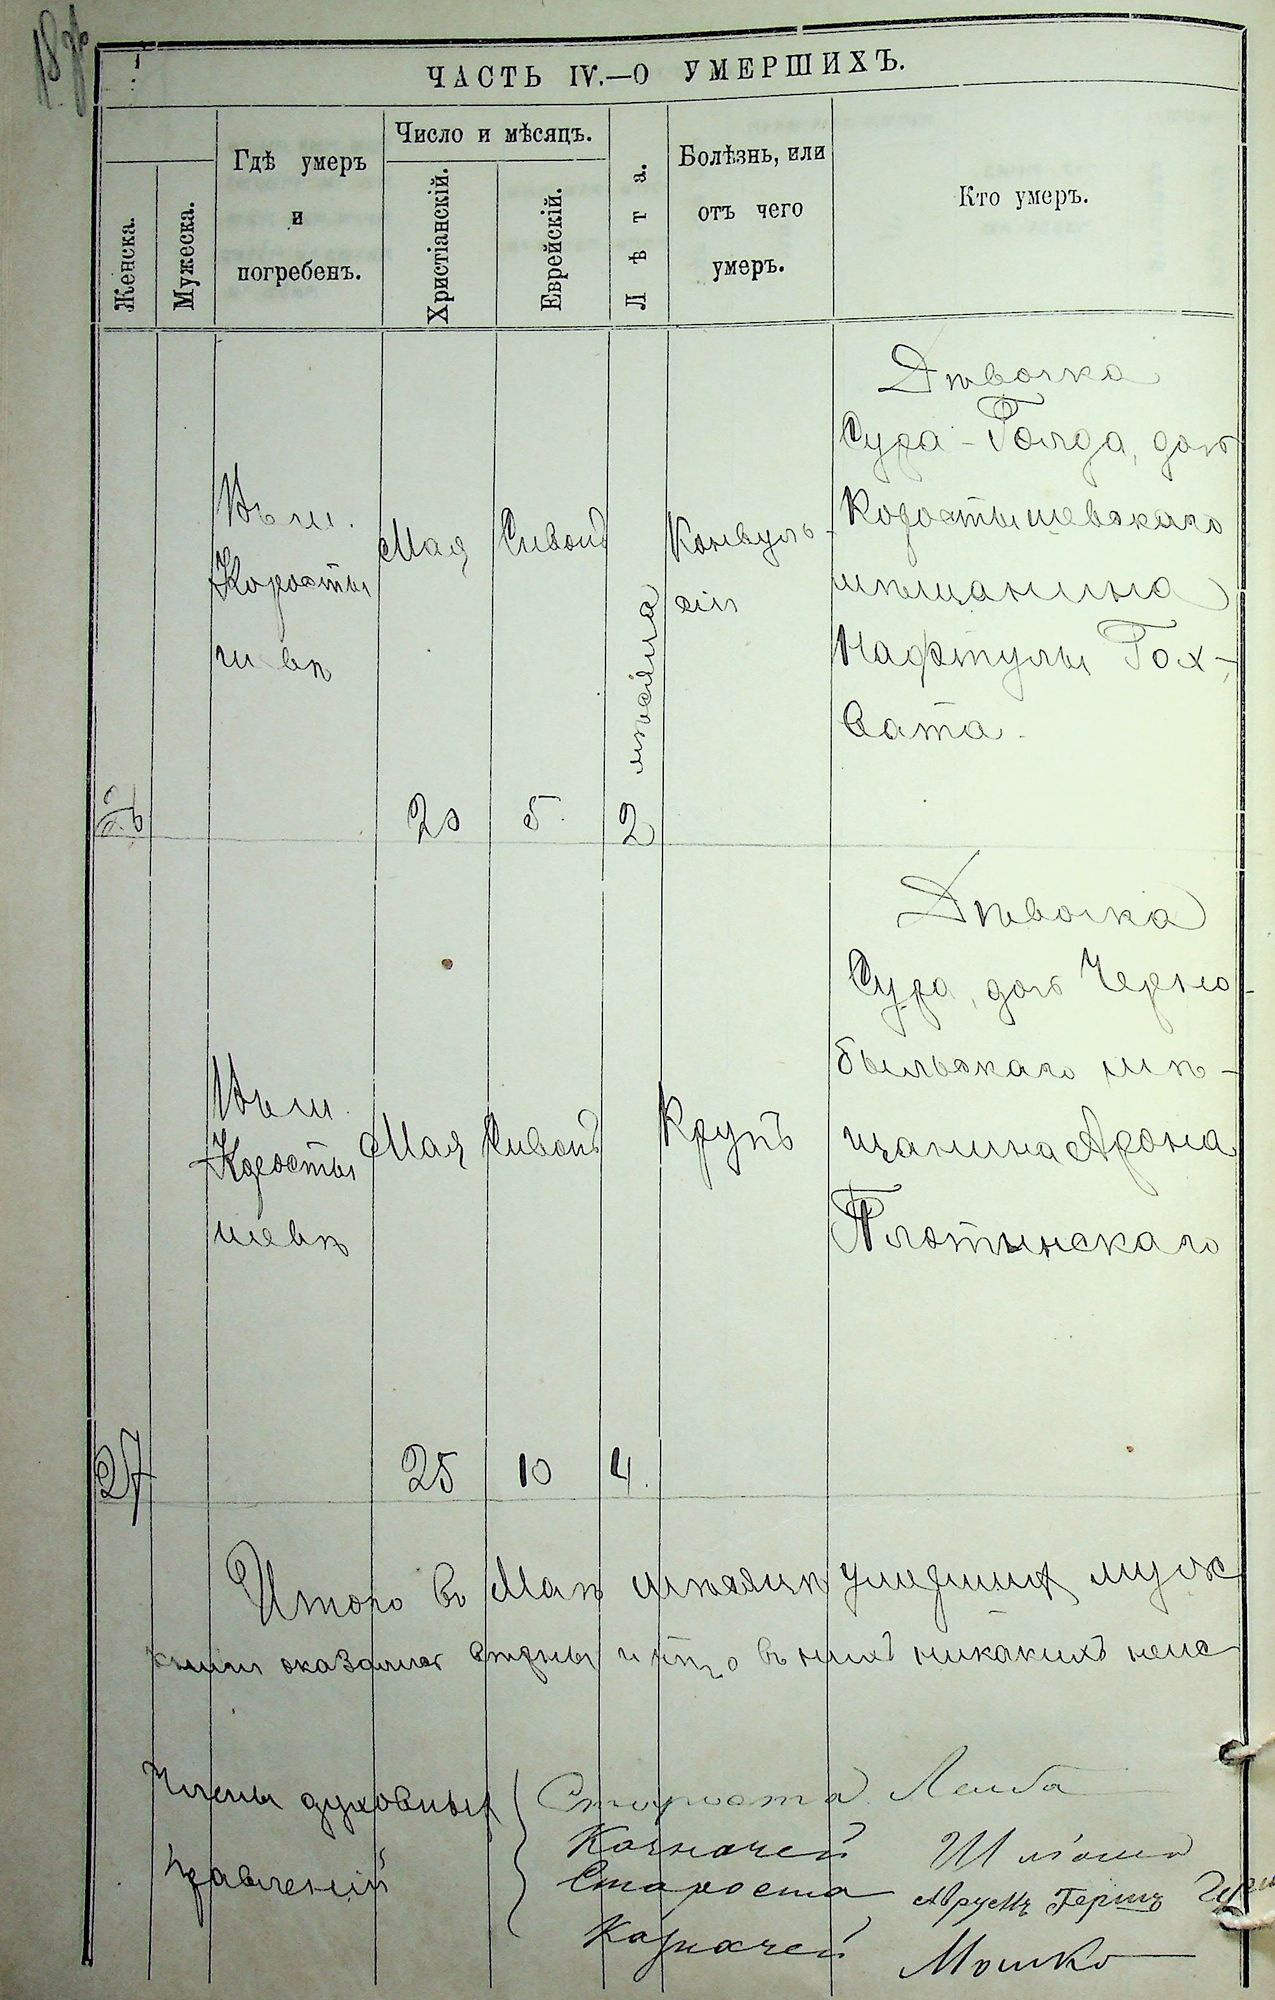 18
ЧАСТЬ IV.—О УМЕРШИХЪ.
Женска.
Мужеска.
Гдѣ умеръ
и
погребенъ.
Число и мѣсяцъ.
Христіанскій.
Еврейскій.
Лѣта.
Болѣзнь, или
отъ чего
умеръ.
Кто умеръ.
26
Въ м.
Коросты
шевѣ
Мая
20
Сивонъ
5.
2 мѣсяца
Конвуль-
сіи
Дѣвочка
Сура-Голда, дочь
Коростышевскаго
мѣщанина
Нафтулы Гох-
вата.
27
Въ м.
Коросты
шевѣ
Мая
25
Сивонъ
10
4.
Крупъ
Дѣвочка
Сура, дочь Черно-
быльскаго мѣ-
щанина Арона
Плотынскаго
Итого въ Маѣ мѣсяцѣ умершихъ муж
книги оказались вѣрны и что въ нихъ никакихъ неис
Члены духовныхъ
правленій
Староста Лейба
Казначей Шлёма
Староста Аврумъ Гершъ
Казначей Мошко